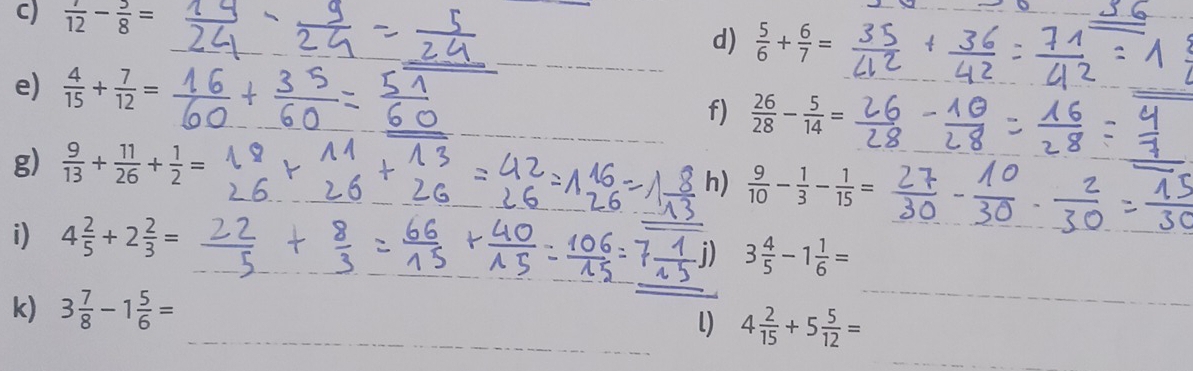 c) 7/12 - 3/8 = 14/24 - 9/24 = 5/24
d) 5/6 + 6/7 = 35/42 + 36/42 = 71/42 = 1
e) 4/15 + 7/12 = 16/60 + 35/60 = 51/60
f) 26/28 - 5/14 = 26/28 - 10/28 = 16/28 = 4/7
g) 9/13 + 11/26 + 1/2 = 18/26 + 11/26 + 13/26 = 42/26 = 1 16/26 = 1 8/13
h) 9/10 - 1/3 - 1/15 = 27/30 - 10/30 - 2/30 = 15/30
i) 4 2/5 + 2 2/3 = 22/5 + 8/3 = 66/15 + 40/15 = 106/15 = 7 1/15
j) 3 4/5 - 1 1/6 =
k) 3 7/8 - 1 5/6 =
l) 4 2/15 + 5 5/12 =